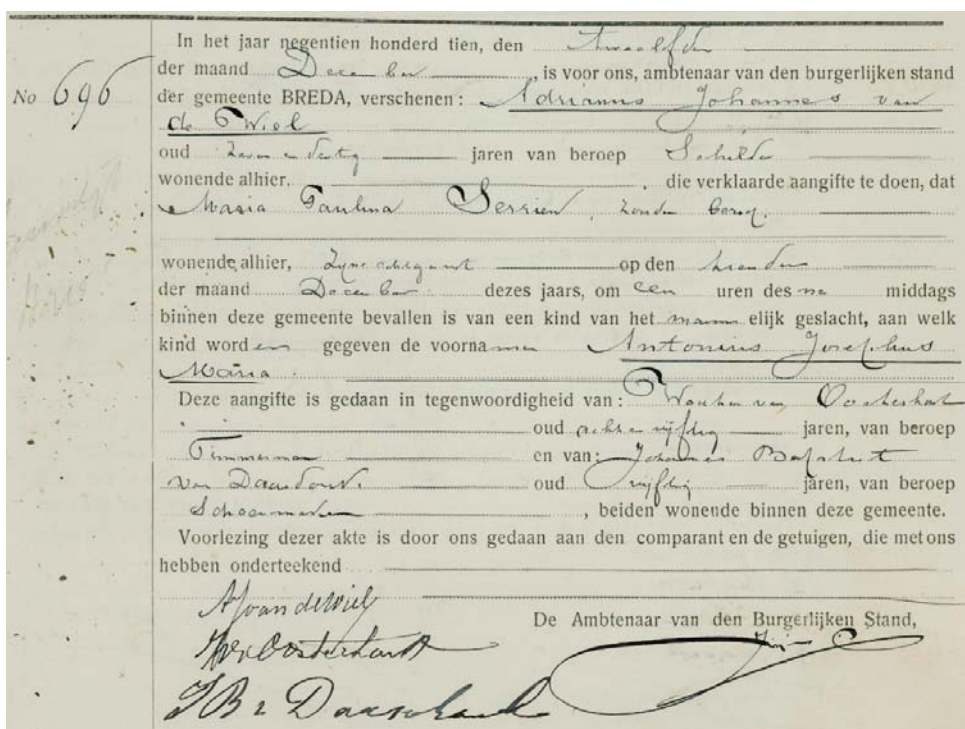 In het jaar negentien honderd tien, den twaalfden
der maand December, is voor ons, ambtenaar van den burgerlijken stand
No 696
der gemeente BREDA, verschenen: Adrianus Johannes van
de Wiel
oud zeven en dertig jaren van beroep Schilder
wonende alhier, die verklaarde aangifte te doen, dat
Maria Paulina Serrien, zonder beroep.
wonende alhier, zyne echtgenoot op den tienden
der maand December dezes jaars, om een uren des na middags
binnen deze gemeente bevallen is van een kind van het mannelijk geslacht, aan welk
kind worden gegeven de voornamen Antonius Josephus
Maria.
Deze aangifte is gedaan in tegenwoordigheid van: Wouter van Oosterhout
oud acht en vijftig jaren, van beroep
Timmerman en van: Johannes Baptist
van Daasdonk oud vijftig jaren, van beroep
Schoenmaker, beiden wonende binnen deze gemeente.
Voorlezing dezer akte is door ons gedaan aan den comparant en de getuigen, die met ons
hebben onderteekend
AJ van de Wiel
De Ambtenaar van den Burgerlijken Stand,
W v Oosterhoudt
J B v